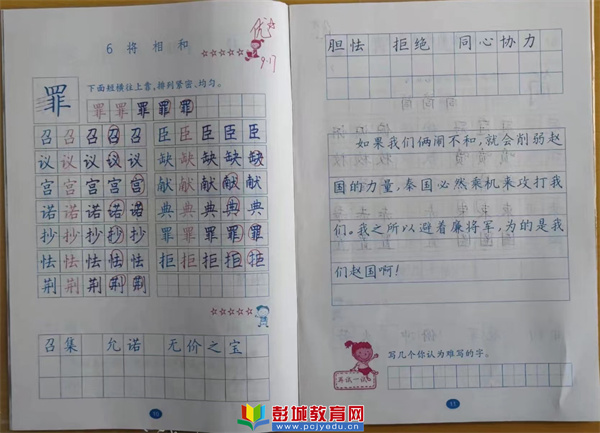 6 将相和
优
9.17
罪
下面短横往上靠，排列紧密、均匀。
罪 罪 罪 罪 罪
召 召 召 召 召 臣 臣 臣 臣 臣
议 议 议 议 议 缺 缺 缺 缺 缺
宫 宫 宫 宫 宫 献 献 献 献 献
诺 诺 诺 诺 诺 典 典 典 典 典
抄 抄 抄 抄 抄 罪 罪 罪 罪 罪
怯 怯 怯 怯 怯 拒 拒 拒 拒 拒
荆 荆 荆 荆 荆
召集 允诺 无价之宝
10
胆怯 拒绝 同心协力
如果我们俩闹不和，就会削弱赵
国的力量，秦国必然乘机来攻打我
们。我之所以避着廉将军，为的是我
们赵国啊！
写几个你认为难写的字。
再试一试
11
彭城教育网
www.pcjyedu.cn